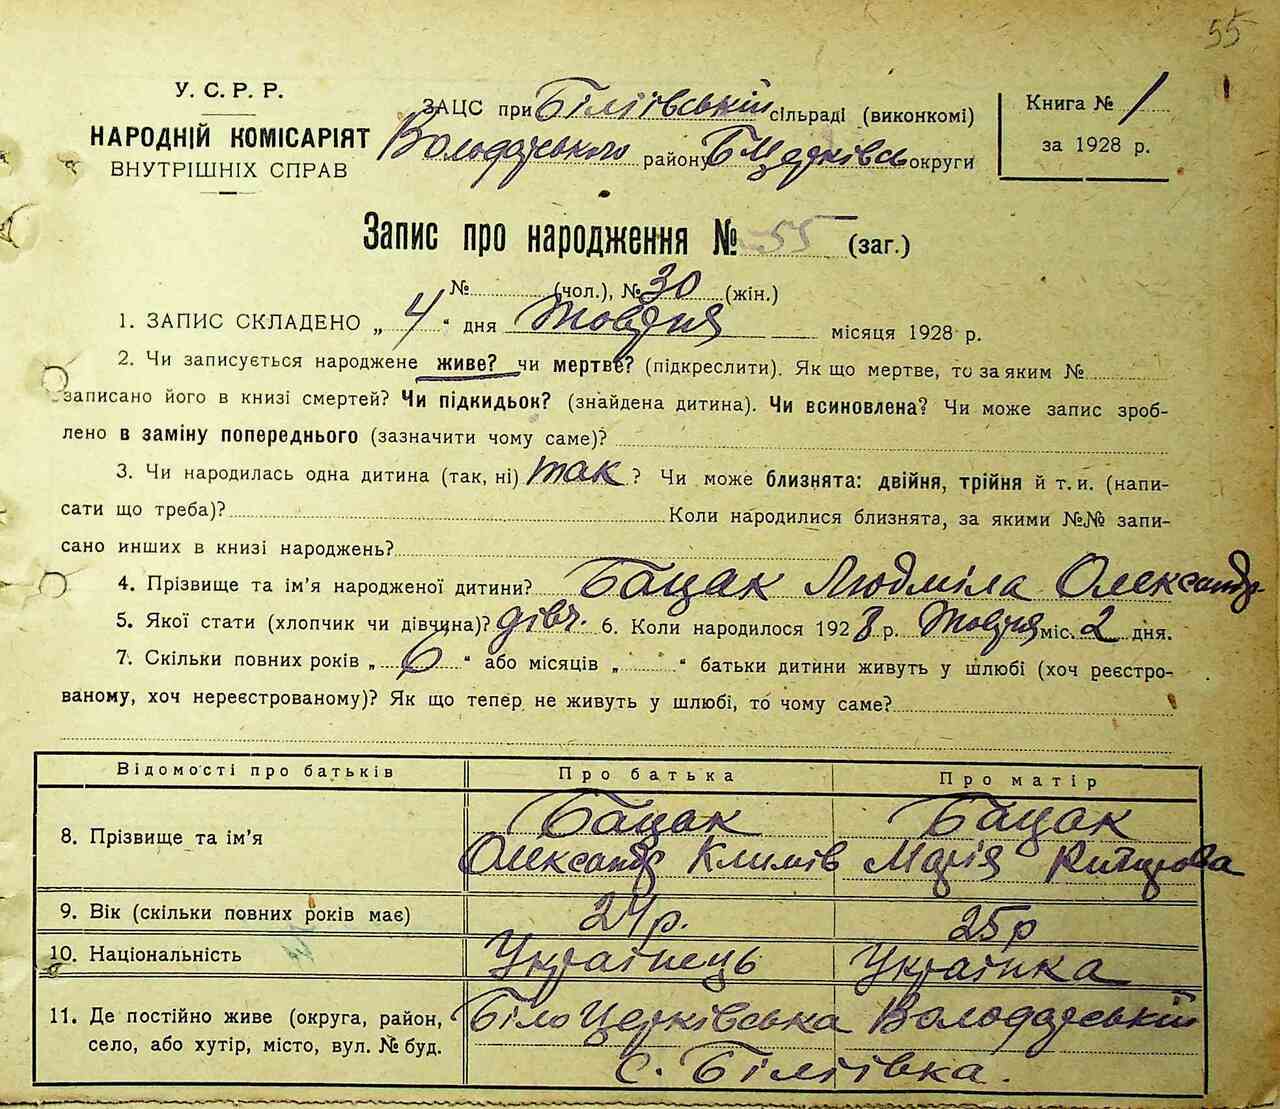 55
У. С. Р. Р.
НАРОДНІЙ КОМІСАРІЯТ
ВНУТРІШНІХ СПРАВ
ЗАЦС при Біліївській сільраді (виконкомі)
Володарського району БЦерківсь округи
Книга № 1
за 1928 р.
Запис про народження № 55 (заг.)
№ (чол.), № 30 (жін.)
1. ЗАПИС СКЛАДЕНО „ 4 “ дня Жовтня місяця 1928 р.
2. Чи записується народжене живе? чи мертве? (підкреслити). Як що мертве, то за яким №
записано його в книзі смертей? Чи підкидьок? (знайдена дитина). Чи всиновлена? Чи може запис зроб-
лено в заміну попереднього (зазначити чому саме)?
3. Чи народилась одна дитина (так, ні) так ? Чи може близнята: двійня, трійня й т. и. (напи-
сати що треба)? Коли народилися близнята, за якими №№ запи-
сано инших в книзі народжень?
4. Прізвище та ім’я народженої дитини? Бацак Людміла Олександр.
5. Якої стати (хлопчик чи дівчина)? дівч. 6. Коли народилося 1928 р. Жовтня міс. 2 дня.
7. Скільки повних років „ 6 “ або місяців „ “ батьки дитини живуть у шлюбі (хоч реєстро-
ваному, хоч нереєстрованому)? Як що тепер не живуть у шлюбі, то чому саме?
Відомості про батьків Про батька Про матір
8. Прізвище та ім’я Бацак Бацак
Олександр Климів Марія
9. Вік (скільки повних років має) 24р. 25р
10. Національність Українець Українка
11. Де постійно живе (округа, район, Біло Церківська Володарський
село, або хутір, місто, вул. № буд. с. Біліївка.